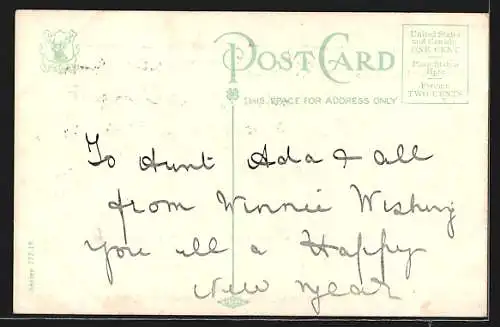 POST CARD
THIS SPACE FOR ADDRESS ONLY
United States
and Canada
ONE CENT
Place Stamp
Here
Foreign
TWO CENTS
To Aunt Ada & all
from Winnie Wishing
you all a Happy
New Year